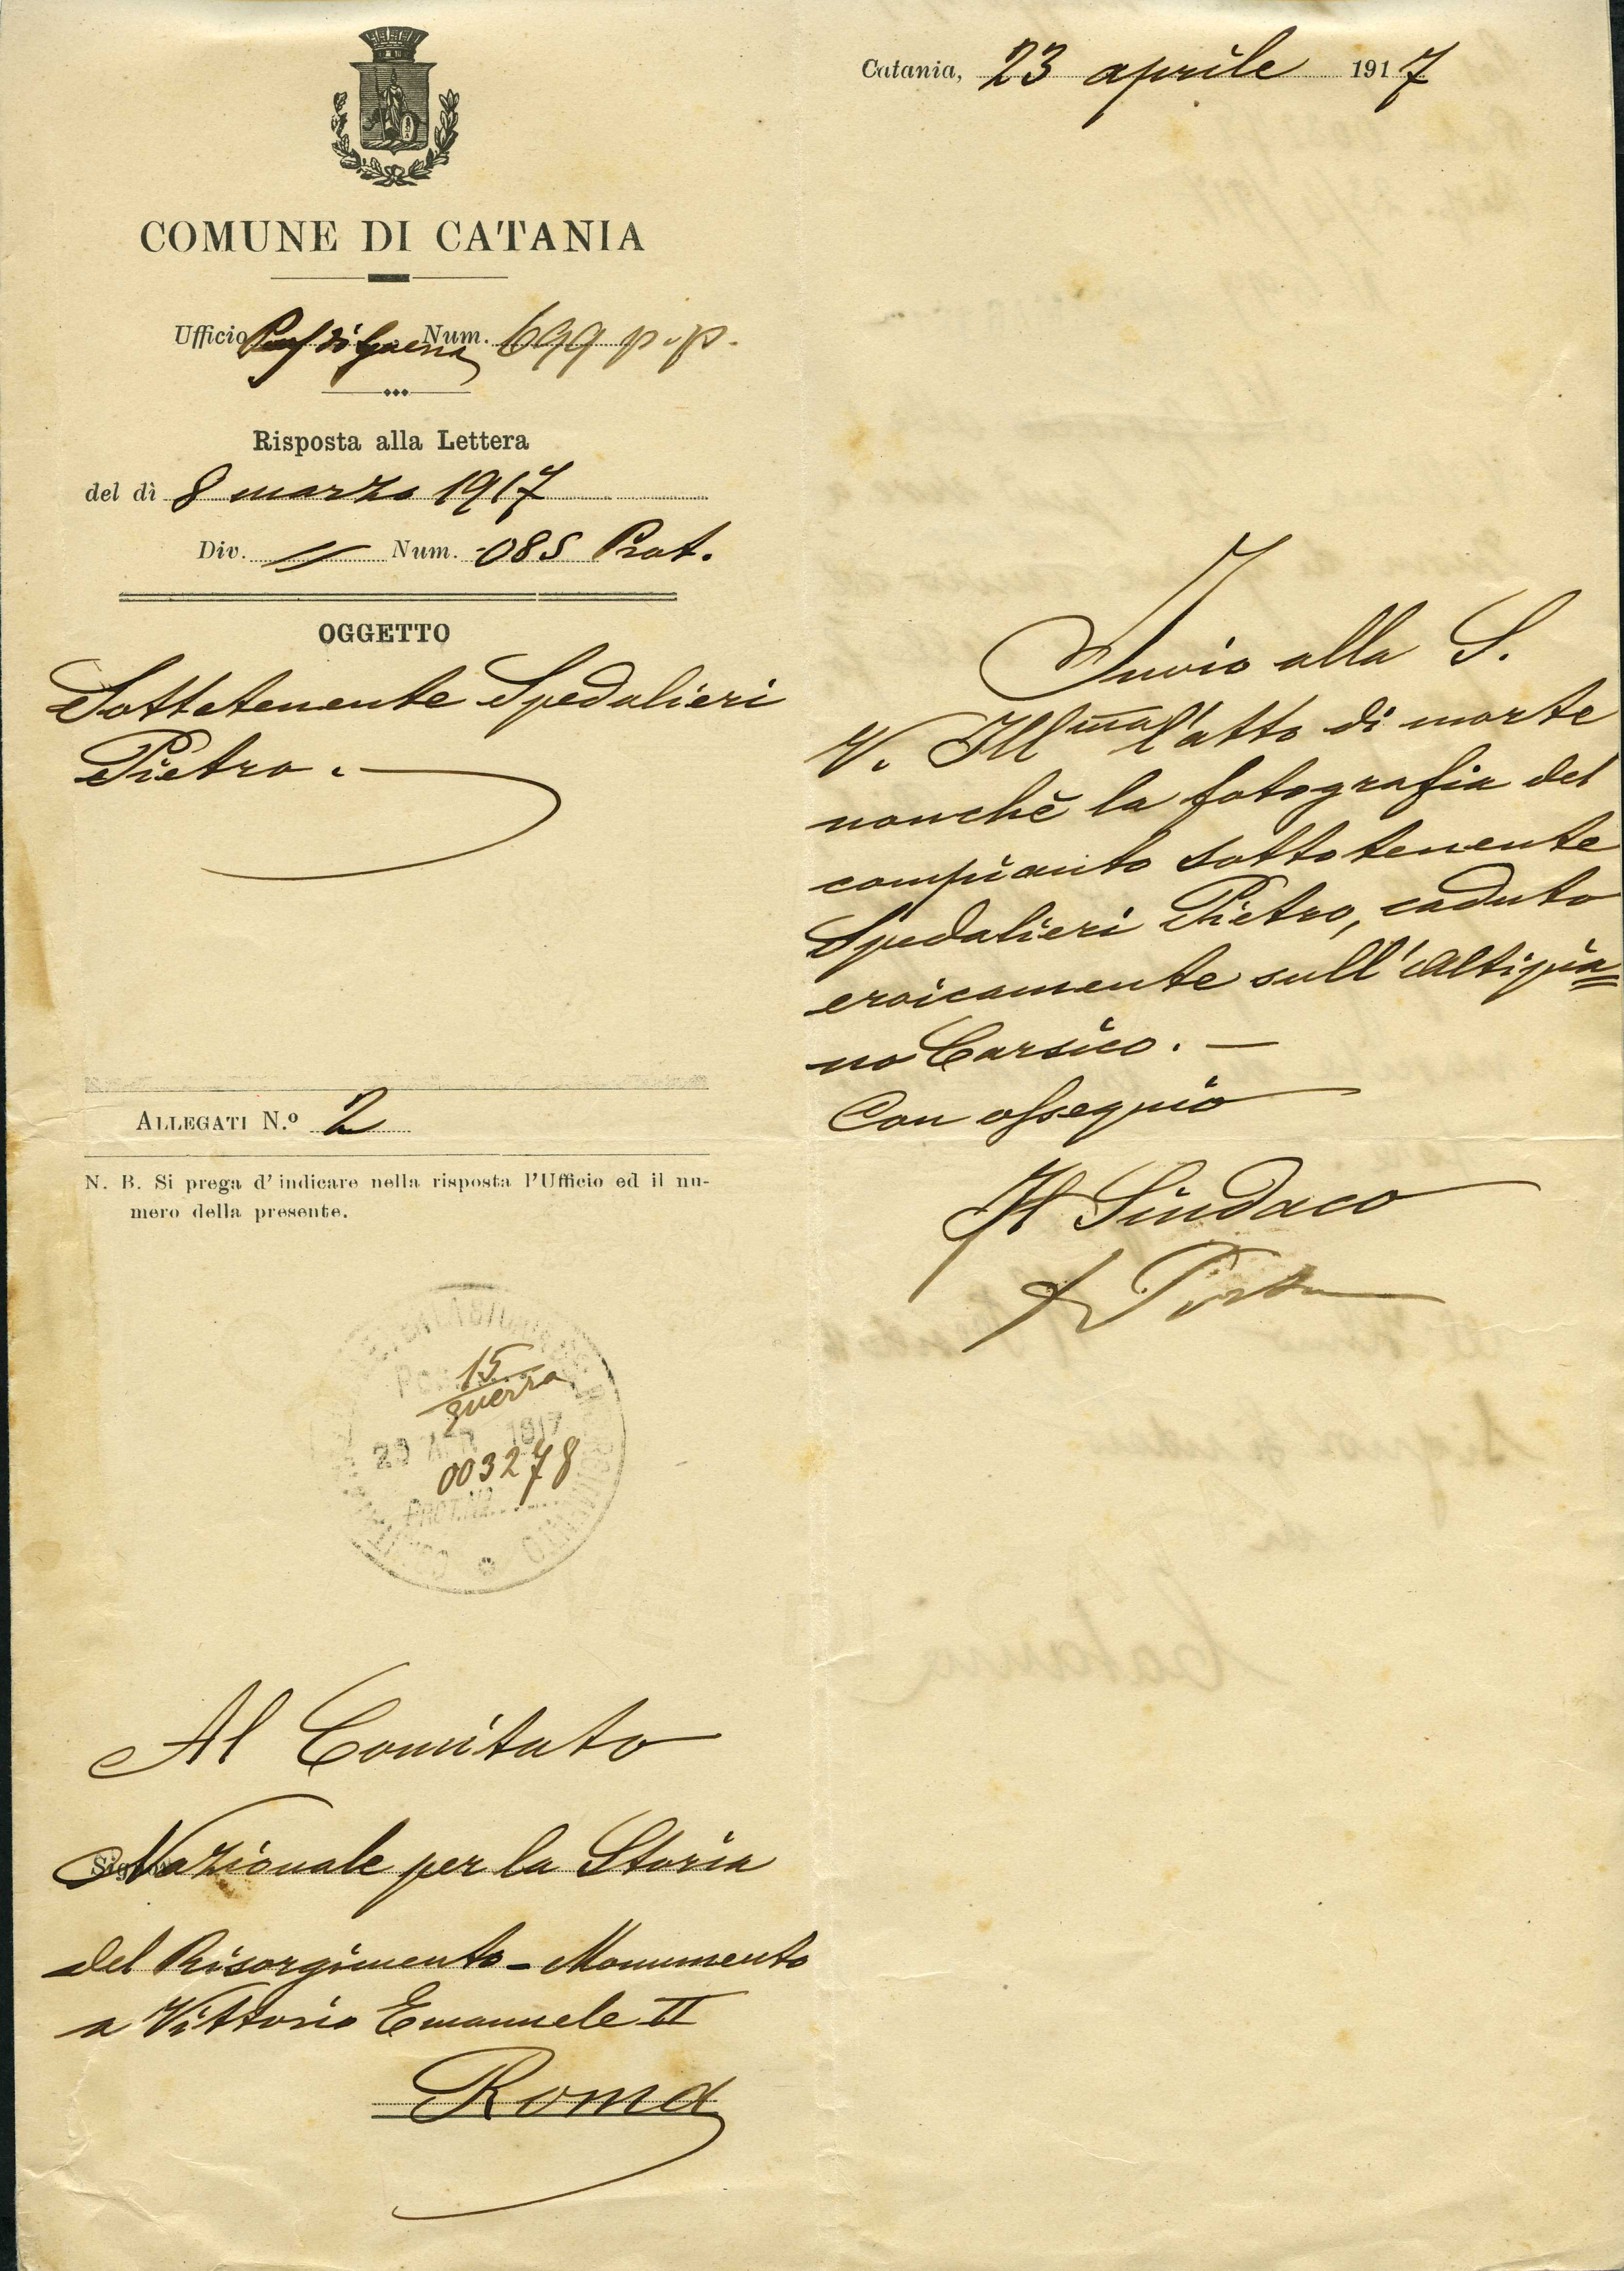 COMUNE DI CATANIA
Ufficio di Guerra Num. 699 p.p.
Risposta alla Lettera
del dì 8 marzo 1917
Div. // Num. 085 Prot.
OGGETTO
Sottotenente Spedalieri
Pietro.
ALLEGATI N.º 2
N. B. Si prega d'indicare nella risposta l'Ufficio ed il nu-
mero della presente.
15
guerra
APR 1917
003278
PROT. Nº
RISORGIMENTO
Al Comitato
Nazionale per la Storia
del Risorgimento - Monumento
a Vittorio Emanuele II
Roma
Catania, 23 aprile 1917
Invio alla S.
V. Illma l'atto di morte
nonchè la fotografia del
compianto sottotenente
Spedalieri Pietro, caduto
eroicamente sull'Altipia=
no Carsico. —
Con ossequio
Il Sindaco